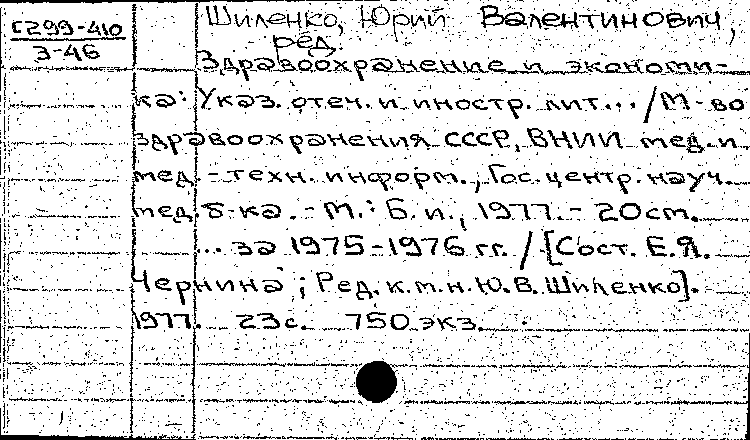 Г299-410
3-46
Шиленко, Юрий Валентинович,
ред.
Здравоохранение и экономи-
ка: Указ. отеч. и иностр. лит... / М-во
здравоохранения СССР, ВНИИ мед. и
мед.-техн. информ., Гос. центр. науч.
мед. б-ка. - М.: Б. и., 1977. - 20см.
... за 1975-1976 гг. / [Сост. Е.Я.
Чернина; Ред. к.м.н. Ю.В. Шиленко].
1977. 23с. 750 экз.